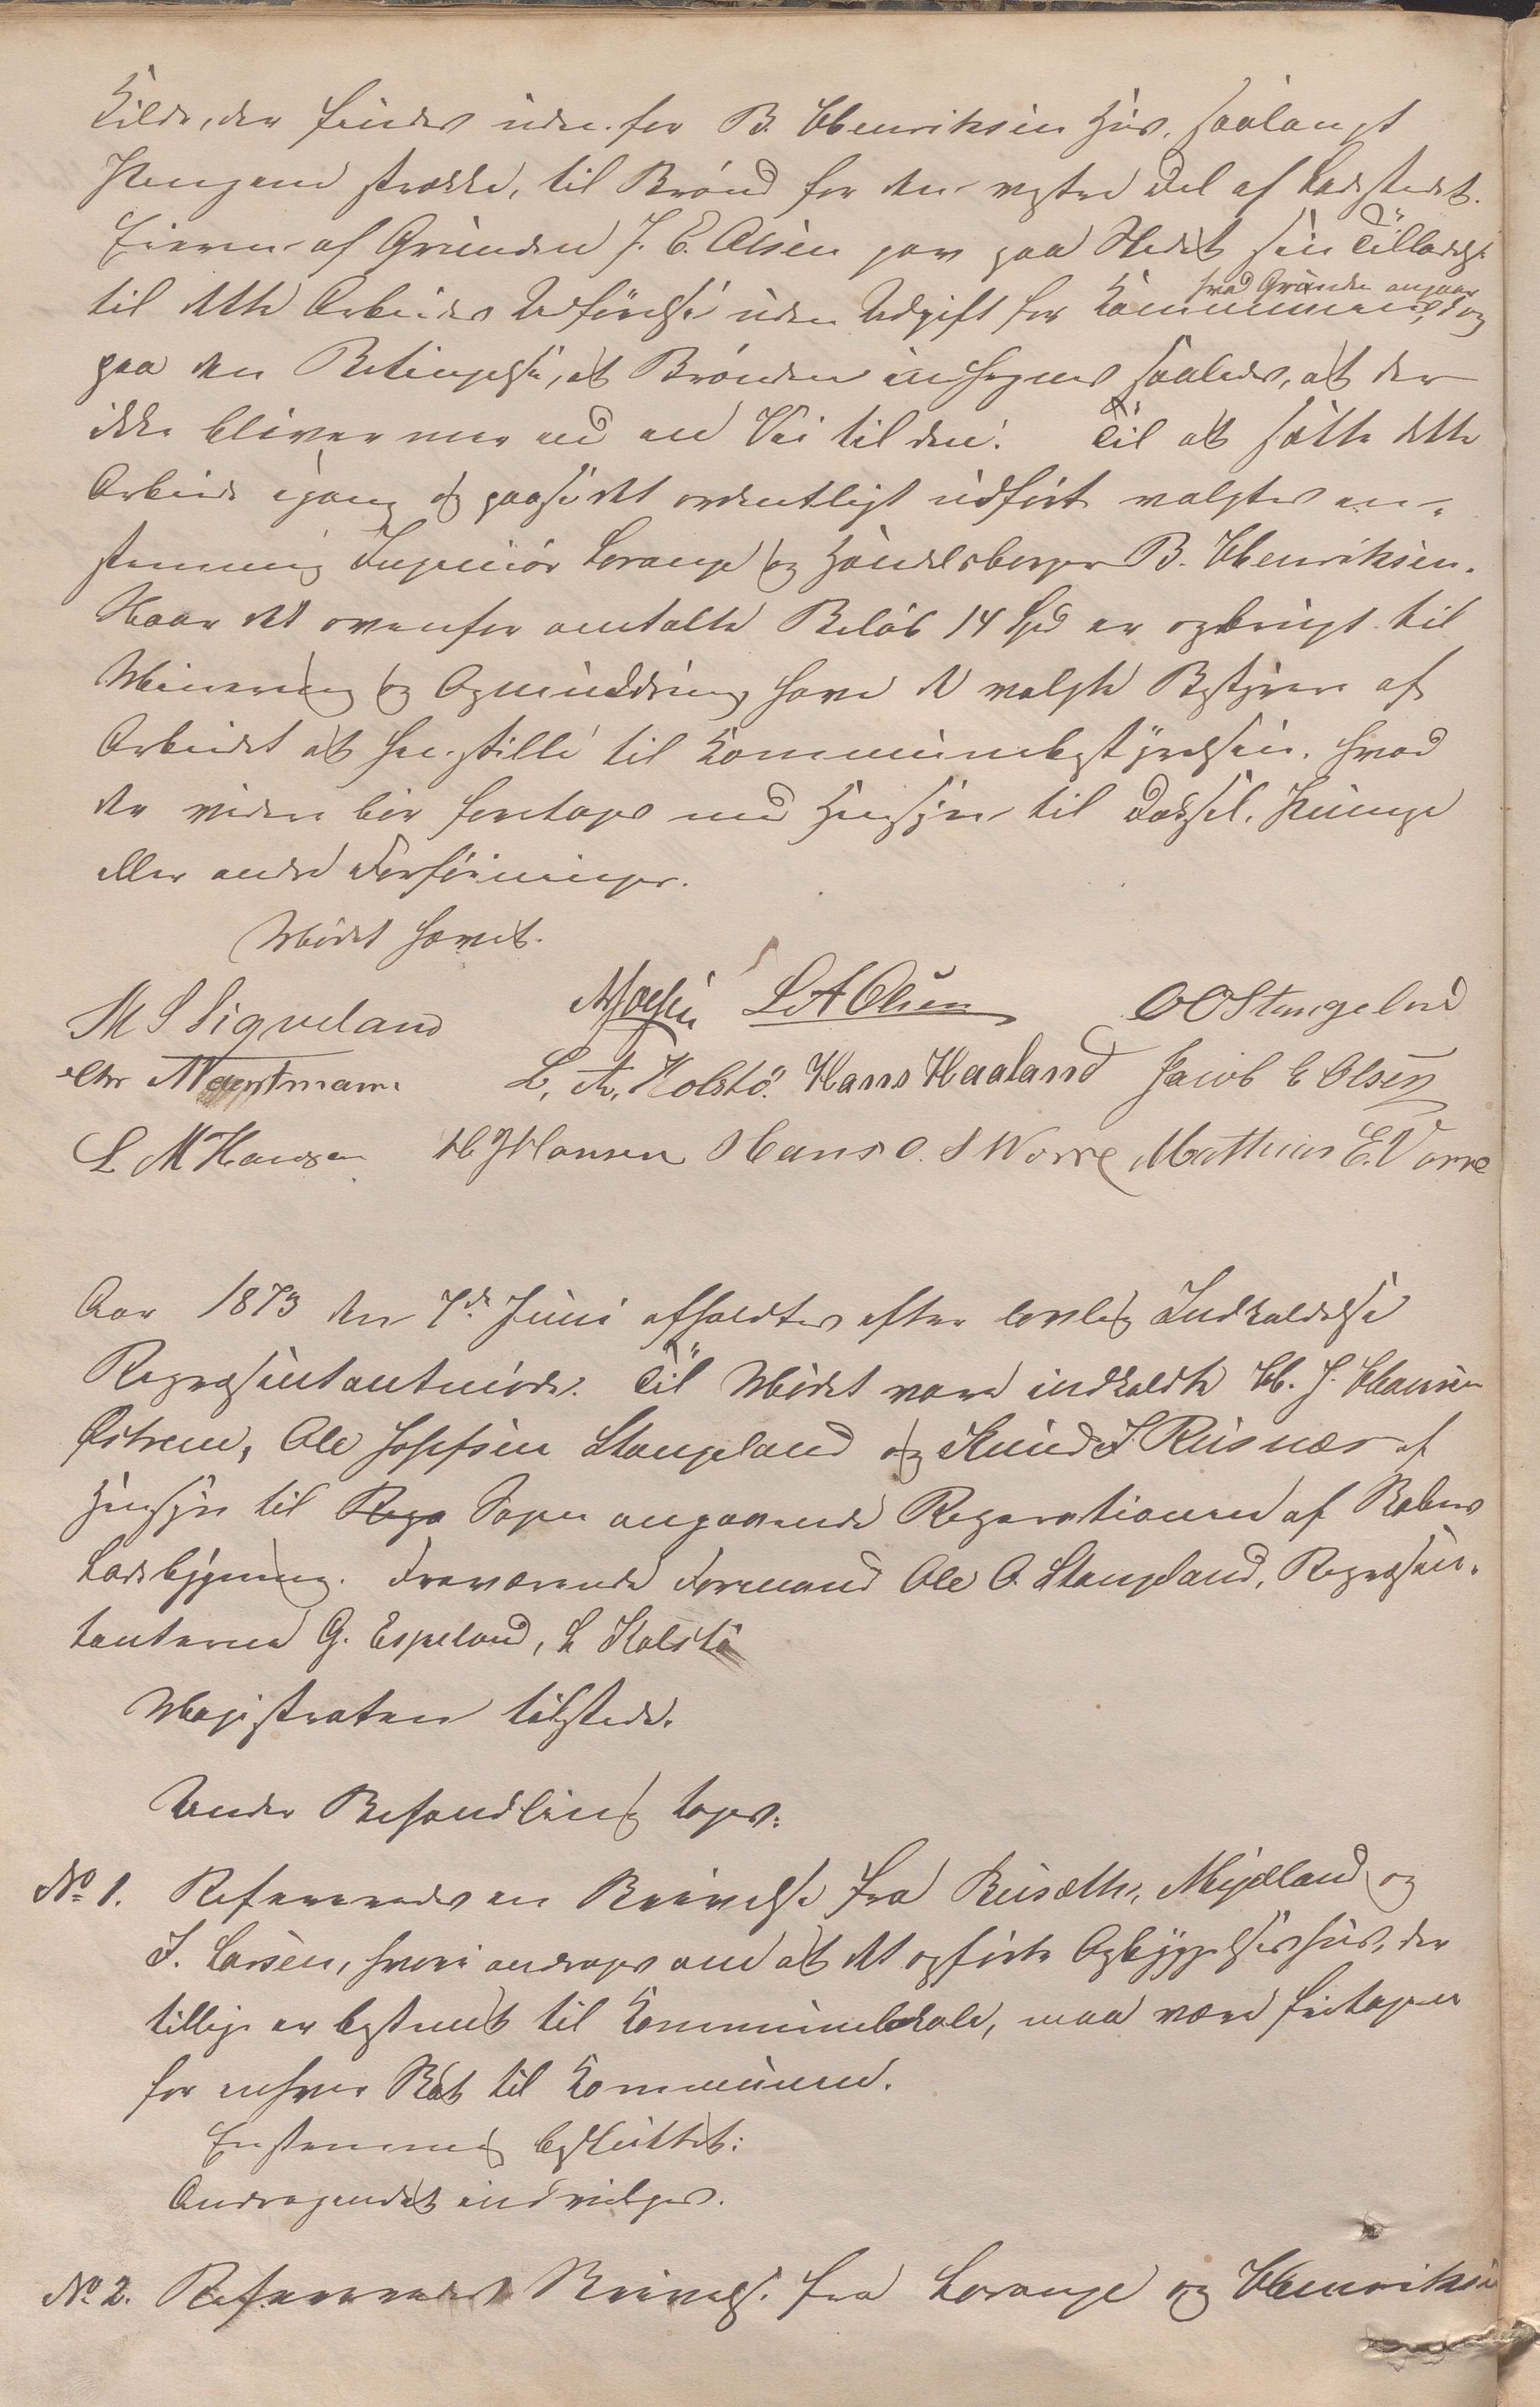 Kilde, der findes uden for B. Henriksens Huus, saalangt
Pengene strække, til Brønd for den vestre Del af Ladestedet.
Eieren af Grunden J. E. Olsen gav paa Stedet sin Tilladelse
til dette Arbeides Udførelse uden Udgift for Kommunen, hvad Grunden angaar, dog
paa den Betingelse, at Brønden indhegnes saaledes, at der
ikke bliver mer end en Vei til den. Til at sætte dette
Arbeide igang og paase det ordentligt udført valgtes en-
stemmig Ingeniør Lorange og Handelsborger B. Henriksen.
Naar det ovenfor omtalte Beløb 14 Spd er opbrugt til
Minering og Opmuddring have de valgte Bestyrere af
Arbeidet at henstille til Kommunebestyrelsen, hvad
der videre bør foretages med Hensyn til Dæksel, Pumpe
eller andre Forføininger.
Mødet hævet.
M S Sigveland L A Olsen O O Stangeland
Chr L. Th. Kolstö. Hans Haaland Jacob E Olsen
L M Hansen H J Hansen Hans O. S Worre Mathias E. Vorre
Aar 1873 den 7de Juni afholdtes efter lovlig Indkaldelse
Repræsentantmøde. Til Mødet vare indkaldte H. J. Hansen
Østrem, Ole Josefsen Stangeland og Knud I. Risnæs af
Hensyn til Repa Sagen angaaende Reparationen af Skolens
Ladebygning. Fraværende Formand Ole O. Stangeland, Repræsen-
tanterne G. Espeland, L Kolstö
Magistraten tilstede.
Under Behandling toges:
No 1. Refereredes en Skrivelse fra Buisæth, Mydland og
I. Larsen, hvori andrages om at det opførte Opbyggelseshus, der
tillige er bestemt til Kommunelokale, maa være fritagen
for enhver Skat til Kommunen.
Enstemmig besluttet:
Andragendet indvilges.
No 2. Refereredes Skrivelse fra Lorange og Henriksen